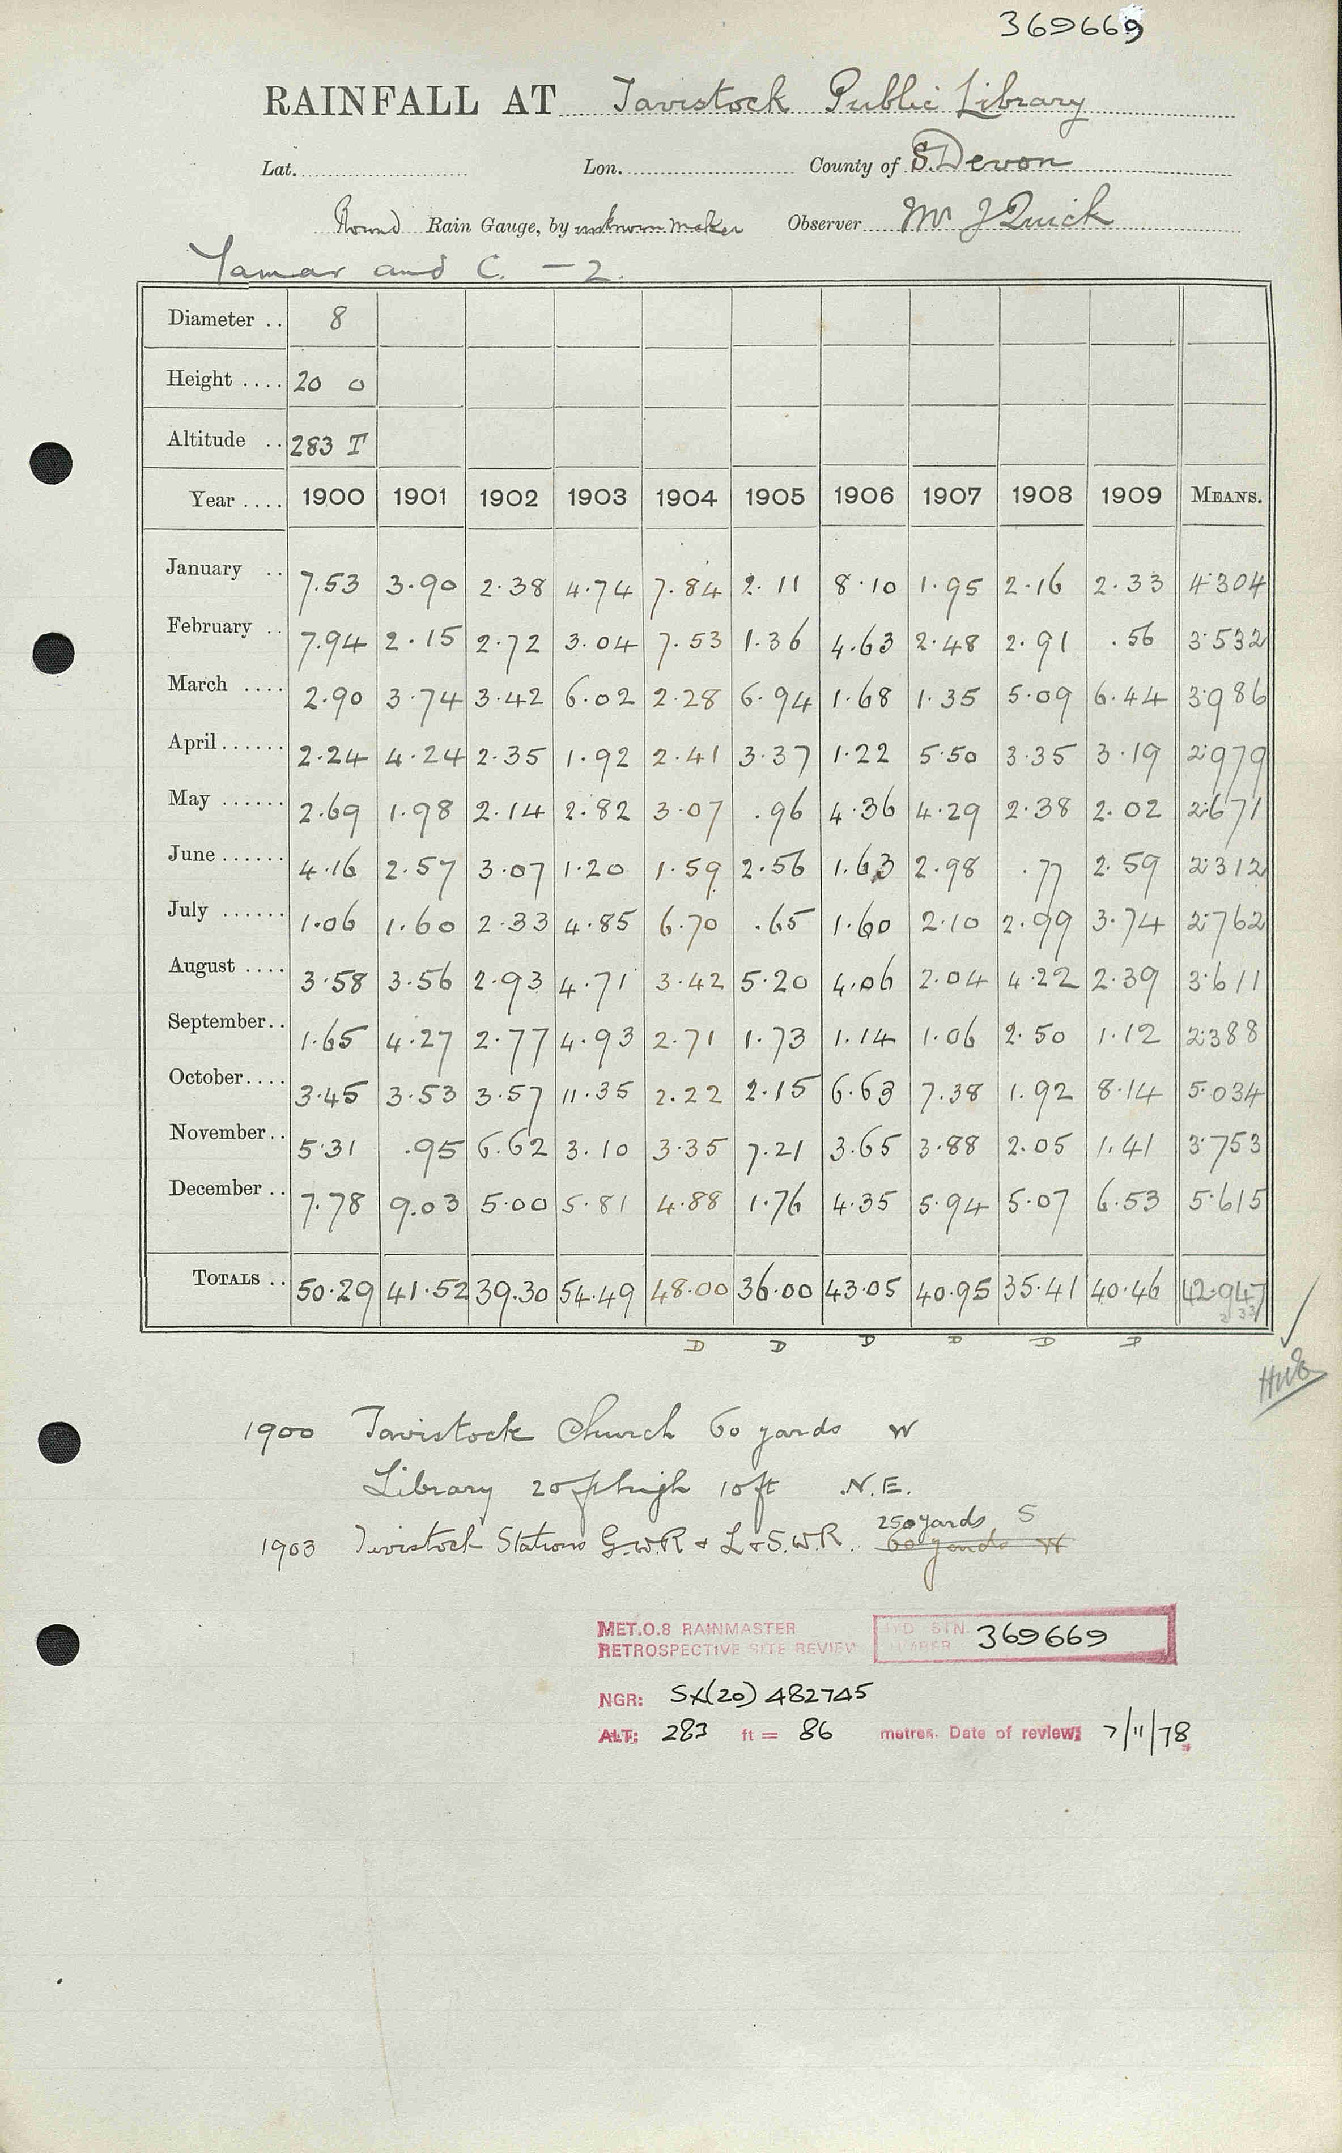 369669
RAINFALL AT Tavistock Public Library
Lat. Lon. County of S. Devon
Round Rain Gauge, by unknown maker Observer Mr J Quick
Tamar and C. - 2.
Diameter .. 8
Height .... 20 0
Altitude .. 283 T
Year .... 1900 1901 1902 1903 1904 1905 1906 1907 1908 1909 MEANS.
January .. 7.53 3.90 2.38 4.74 7.84 2.11 8.10 1.95 2.16 2.33 4.304
February .. 7.94 2.15 2.72 3.04 7.53 1.36 4.63 2.48 2.91 .56 3.532
March .... 2.90 3.74 3.42 6.02 2.28 6.94 1.68 1.35 5.09 6.44 3.986
April ...... 2.24 4.24 2.35 1.92 2.41 3.37 1.22 5.50 3.35 3.19 2.979
May ...... 2.69 1.98 2.14 2.82 3.07 .96 4.36 4.29 2.38 2.02 2.671
June ...... 4.16 2.57 3.07 1.20 1.59 2.56 1.63 2.98 .77 2.59 2.312
July ...... 1.06 1.60 2.33 4.85 6.70 .65 1.60 2.10 2.99 3.74 2.762
August .... 3.58 3.56 2.93 4.71 3.42 5.20 4.06 2.04 4.22 2.39 3.611
September.. 1.65 4.27 2.77 4.93 2.71 1.73 1.14 1.06 2.50 1.12 2.388
October.... 3.45 3.53 3.57 11.35 2.22 2.15 6.63 7.38 1.92 8.14 5.034
November.. 5.31 .95 6.62 3.10 3.35 7.21 3.65 3.88 2.05 1.41 3.753
December .. 7.78 9.03 5.00 5.81 4.88 1.76 4.35 5.94 5.07 6.53 5.615
TOTALS .. 50.29 41.52 39.30 54.49 48.00 36.00 43.05 40.95 35.41 40.46 42.947
D D D D D D
1900 Tavistock Church 60 yards W
Library 20 ft high 10 ft N.E.
250 yards S
1903 Tavistock Stations G.W.R & L & S.W.R. 60 yards W
MET.O.8 RAINMASTER
RETROSPECTIVE SITE REVIEW
STN. NUMBER 369669
NGR: SX(20) 482745
ALT: 283 ft = 86 metres. Date of review: 7/11/78